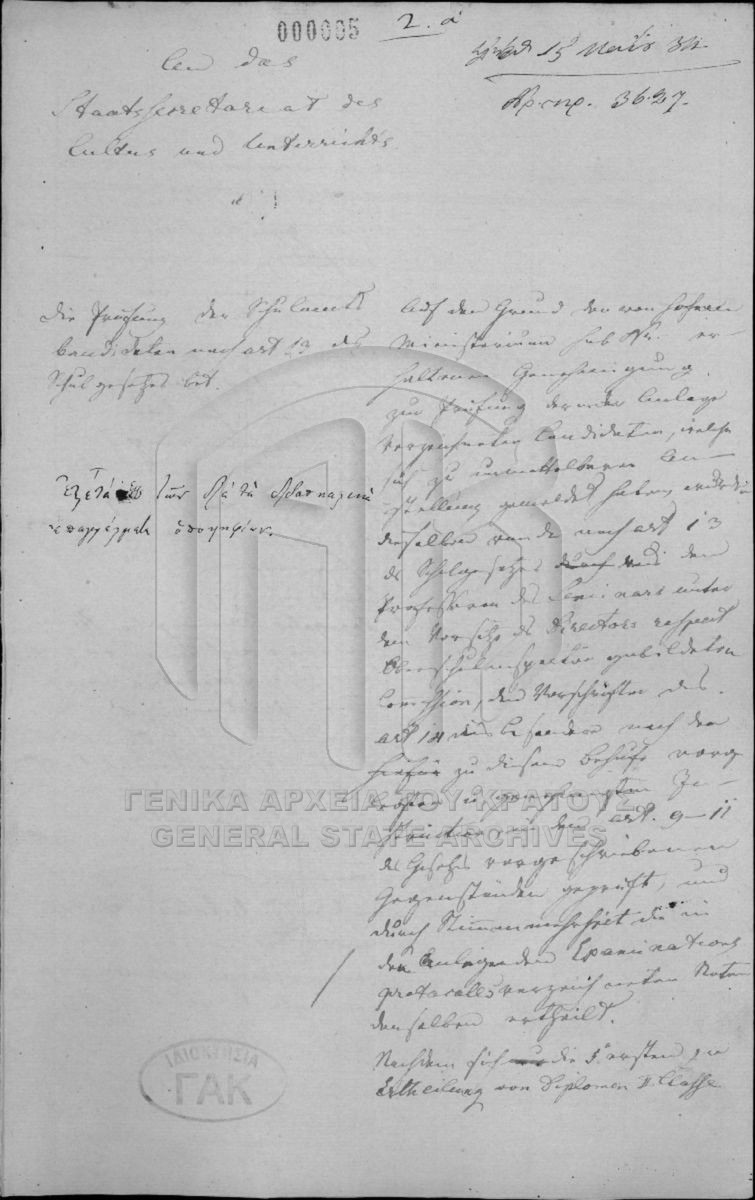 000005
2. a
15 Μαΐου 34
Αρ. πρ. 3627.
An das
Staatssecretariat des
Cultus und Unterrichts.
Die Prüfung der Schulamts
Candidaten nach art 13 des
Schulgesetzes bet.
τῶν διὰ τὰ διδασκαλικὰ
ἐπαγγέλματα ὑποψηφίων.
Auf den Grund der von hohem
Ministerium sub Nr. er-
haltenen Genehmigung
zur Prüfung der in der Anlage
verzeichneten Candidaten, welche
sich zu unmittelbarer An-
stellung gemeldet haben, wurden
dieselben nach art 13
des Schulgesetzes durch die den
Professoren des Seminars unter
dem Vorsitze des Directors respect
Oberschulinspector gebildeten
Comission, den Vorschriften des
art 14 nach den
hiefür zu diesem Behufe vorge
In-
struction in den art. 9-11
des Gesetzes vorgeschriebenen
Gegenständen geprüft, und
durch Stimmenmehrheit die in
den anliegenden Examinations
protocolls verzeichneten Noten
denselben ertheilt.
Nachdem sich die 5 ersten zu
Ertheilung von Diplomen II Classe
ΓΕΝΙΚΑ ΑΡΧΕΙΑ ΤΟΥ ΚΡΑΤΟΥΣ
GENERAL STATE ARCHIVES
ΙΔΙΟΚΤΗΣΙΑ
ΓΑΚ